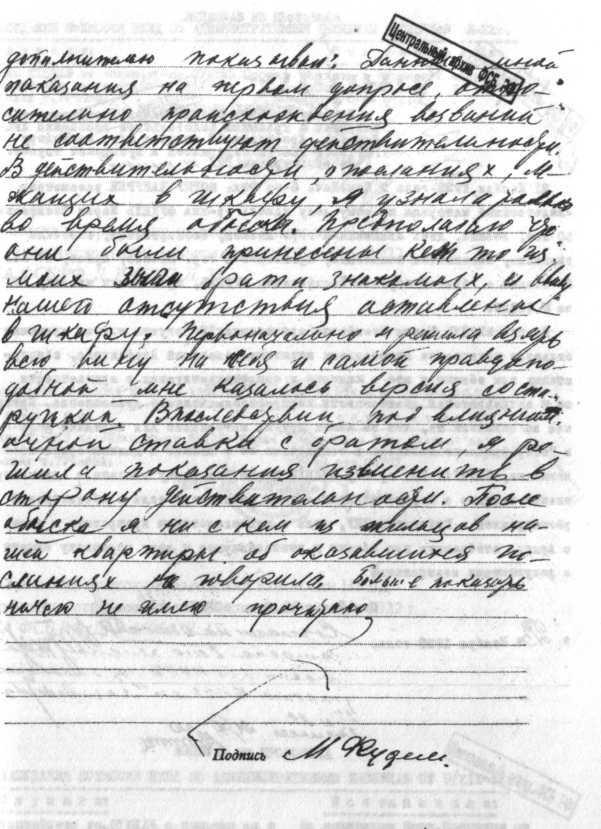 Центральный архив ФСБ
дополнительно показываю: Данные мной
показания на первом допросе, относ-
сительно происхождения воззваний
не соответствуют действительности.
В действительности, о посланиях, ле-
жащих в шкафу, я узнала только
во время обыска. Предполагаю что
они были принесены кем то из
моих брата знакомых, и ввиду
нашего отсутствия оставлены
в шкафу. Первоначально я решила взять
всю вину на себя и самой правдопо-
добной мне казалось версия со ста-
рушкой. Впоследствии, под влиянием
очной ставки с братом, я ре-
шила показания изменить в
сторону действительности. После
обыска я ни с кем из жильцов на-
шей квартиры об оказавшихся по-
сланиях не говорила. Больше показать
ничего не имею прочитано
Подпись М